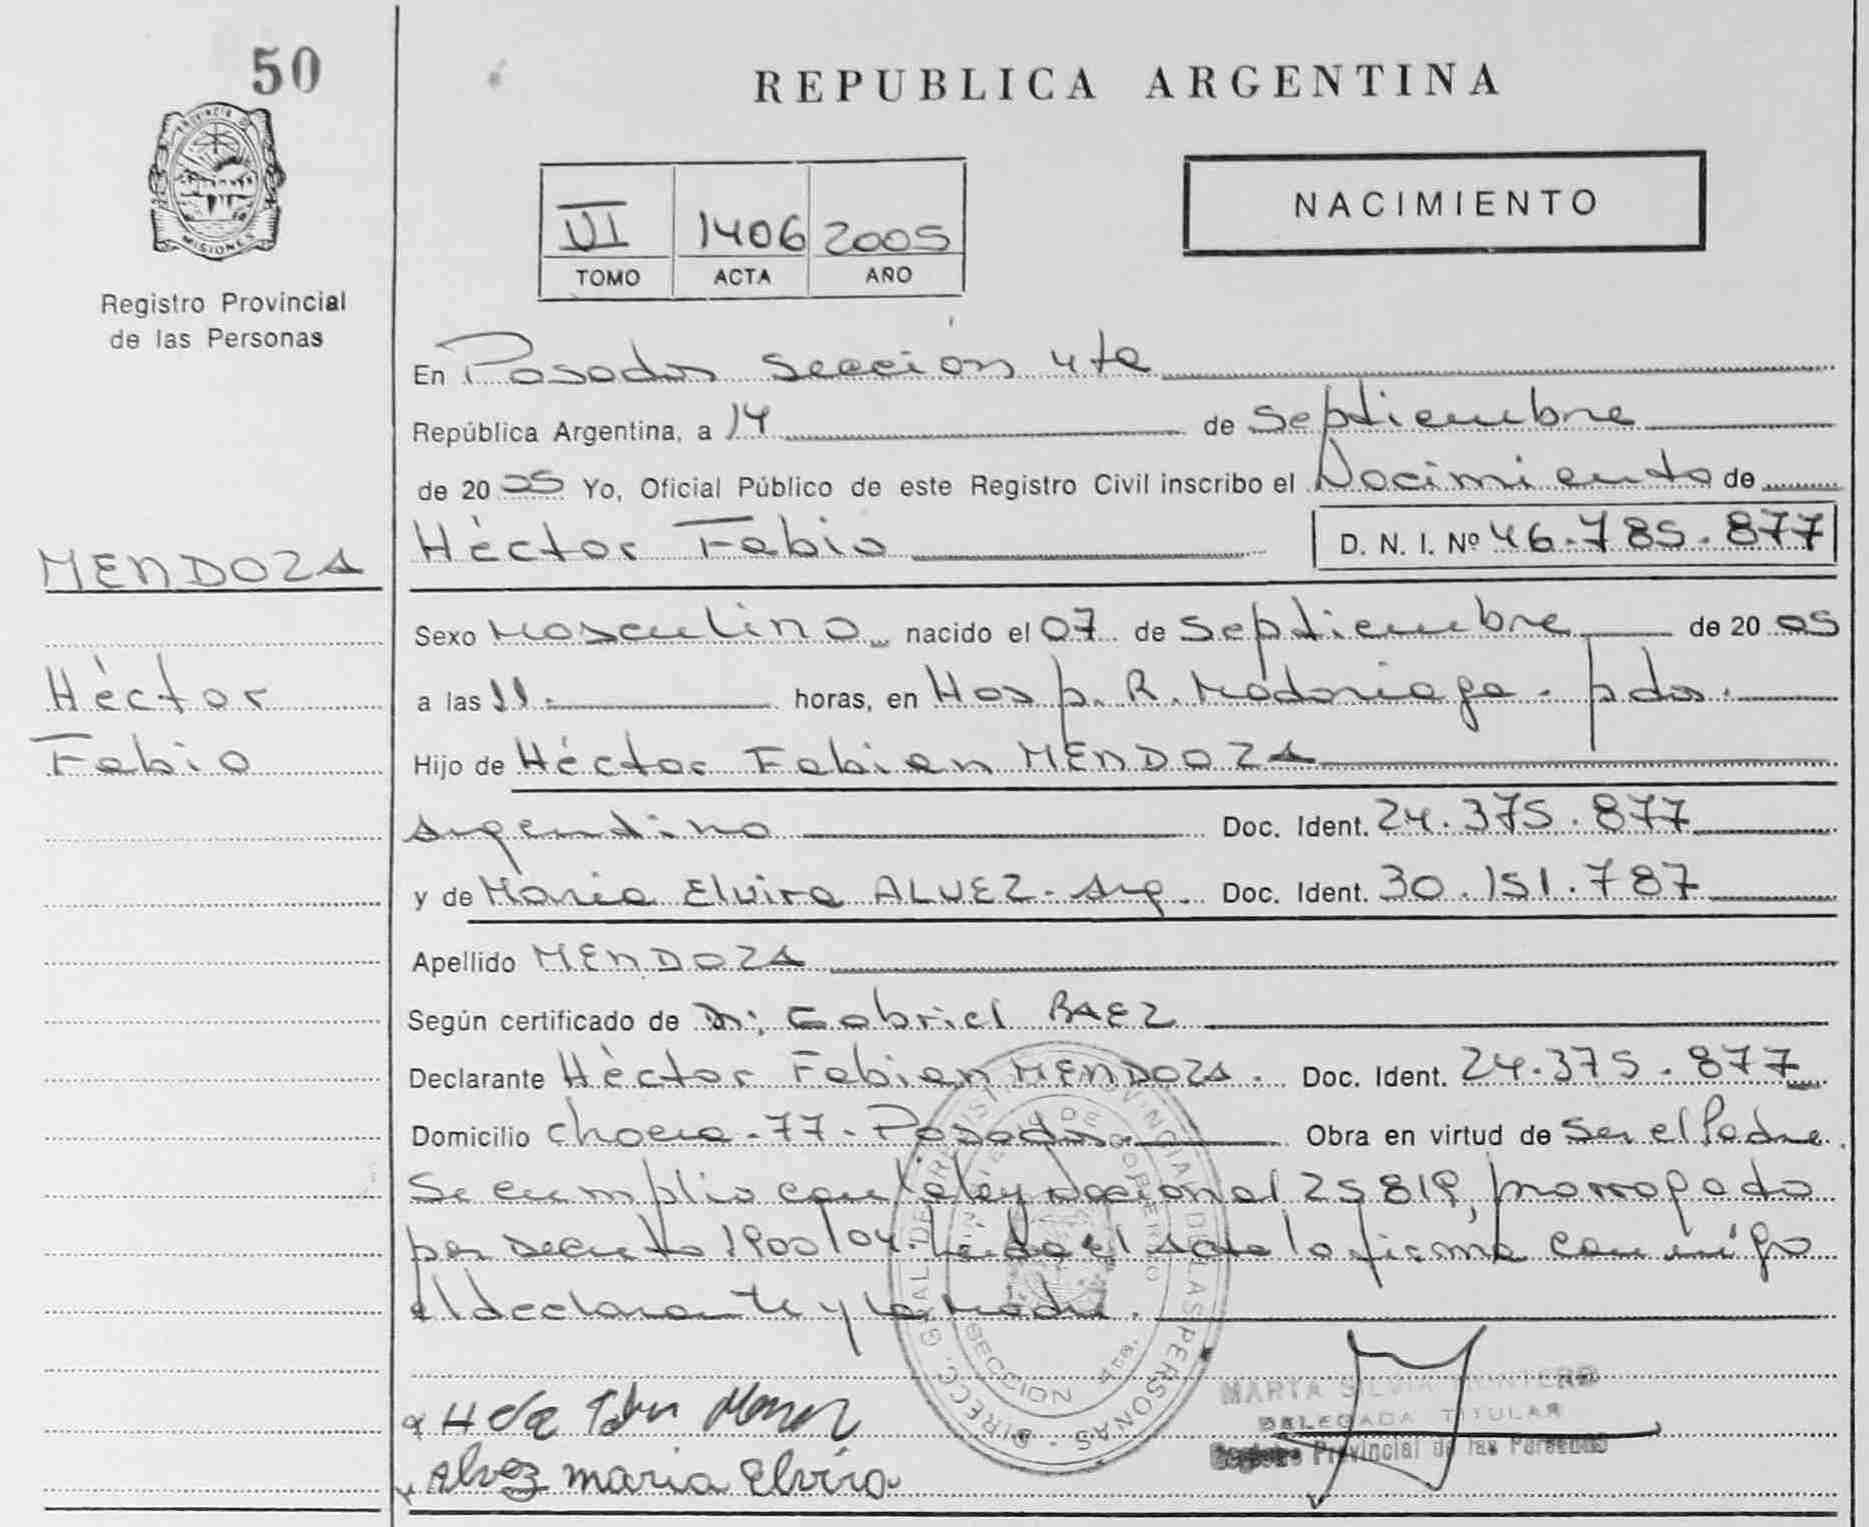 50
REPUBLICA ARGENTINA
PROVINCIA D
MISIONES
Registro Provincial
de las Personas
VI 1406 2005
TOMO ACTA AÑO
NACIMIENTO
En Posadas sección 4ta
República Argentina, a 14 de Septiembre
de 20 05 Yo, Oficial Público de este Registro Civil inscribo el Nacimiento de
Héctor Fabio D. N. I. Nº 46.785.877
MENDOZA
Sexo Masculino nacido el 07 de Septiembre de 20 05
Héctor
a las 11. horas, en Hosp. R. Madariaga - pdas.
Fabio
Hijo de Héctor Fabian MENDOZA
argentino Doc. Ident. 24.375.877
y de Maria Elvira ALVEZ - arg. Doc. Ident. 30.151.787
Apellido MENDOZA
Según certificado de Dr: Gabriel BAEZ
Declarante Héctor Fabian MENDOZA. Doc. Ident. 24.375.877
Domicilio chacra - 77 - Posadas. Obra en virtud de ser el Padre.
Se cumplio con la ley Nacional 25819, prorrogado
por decreto 1900/04. Leida el acta la firma conmigo
el declarante y la madre.
DIRECC. GRAL. DE REGISTRO PROVINCIAL DE LAS PERSONAS
SECCION 4ta.
MARTA SILVIA MONTERO
DELEGADA TITULAR
Registro Provincial de las Personas
Alvez maria Elvira